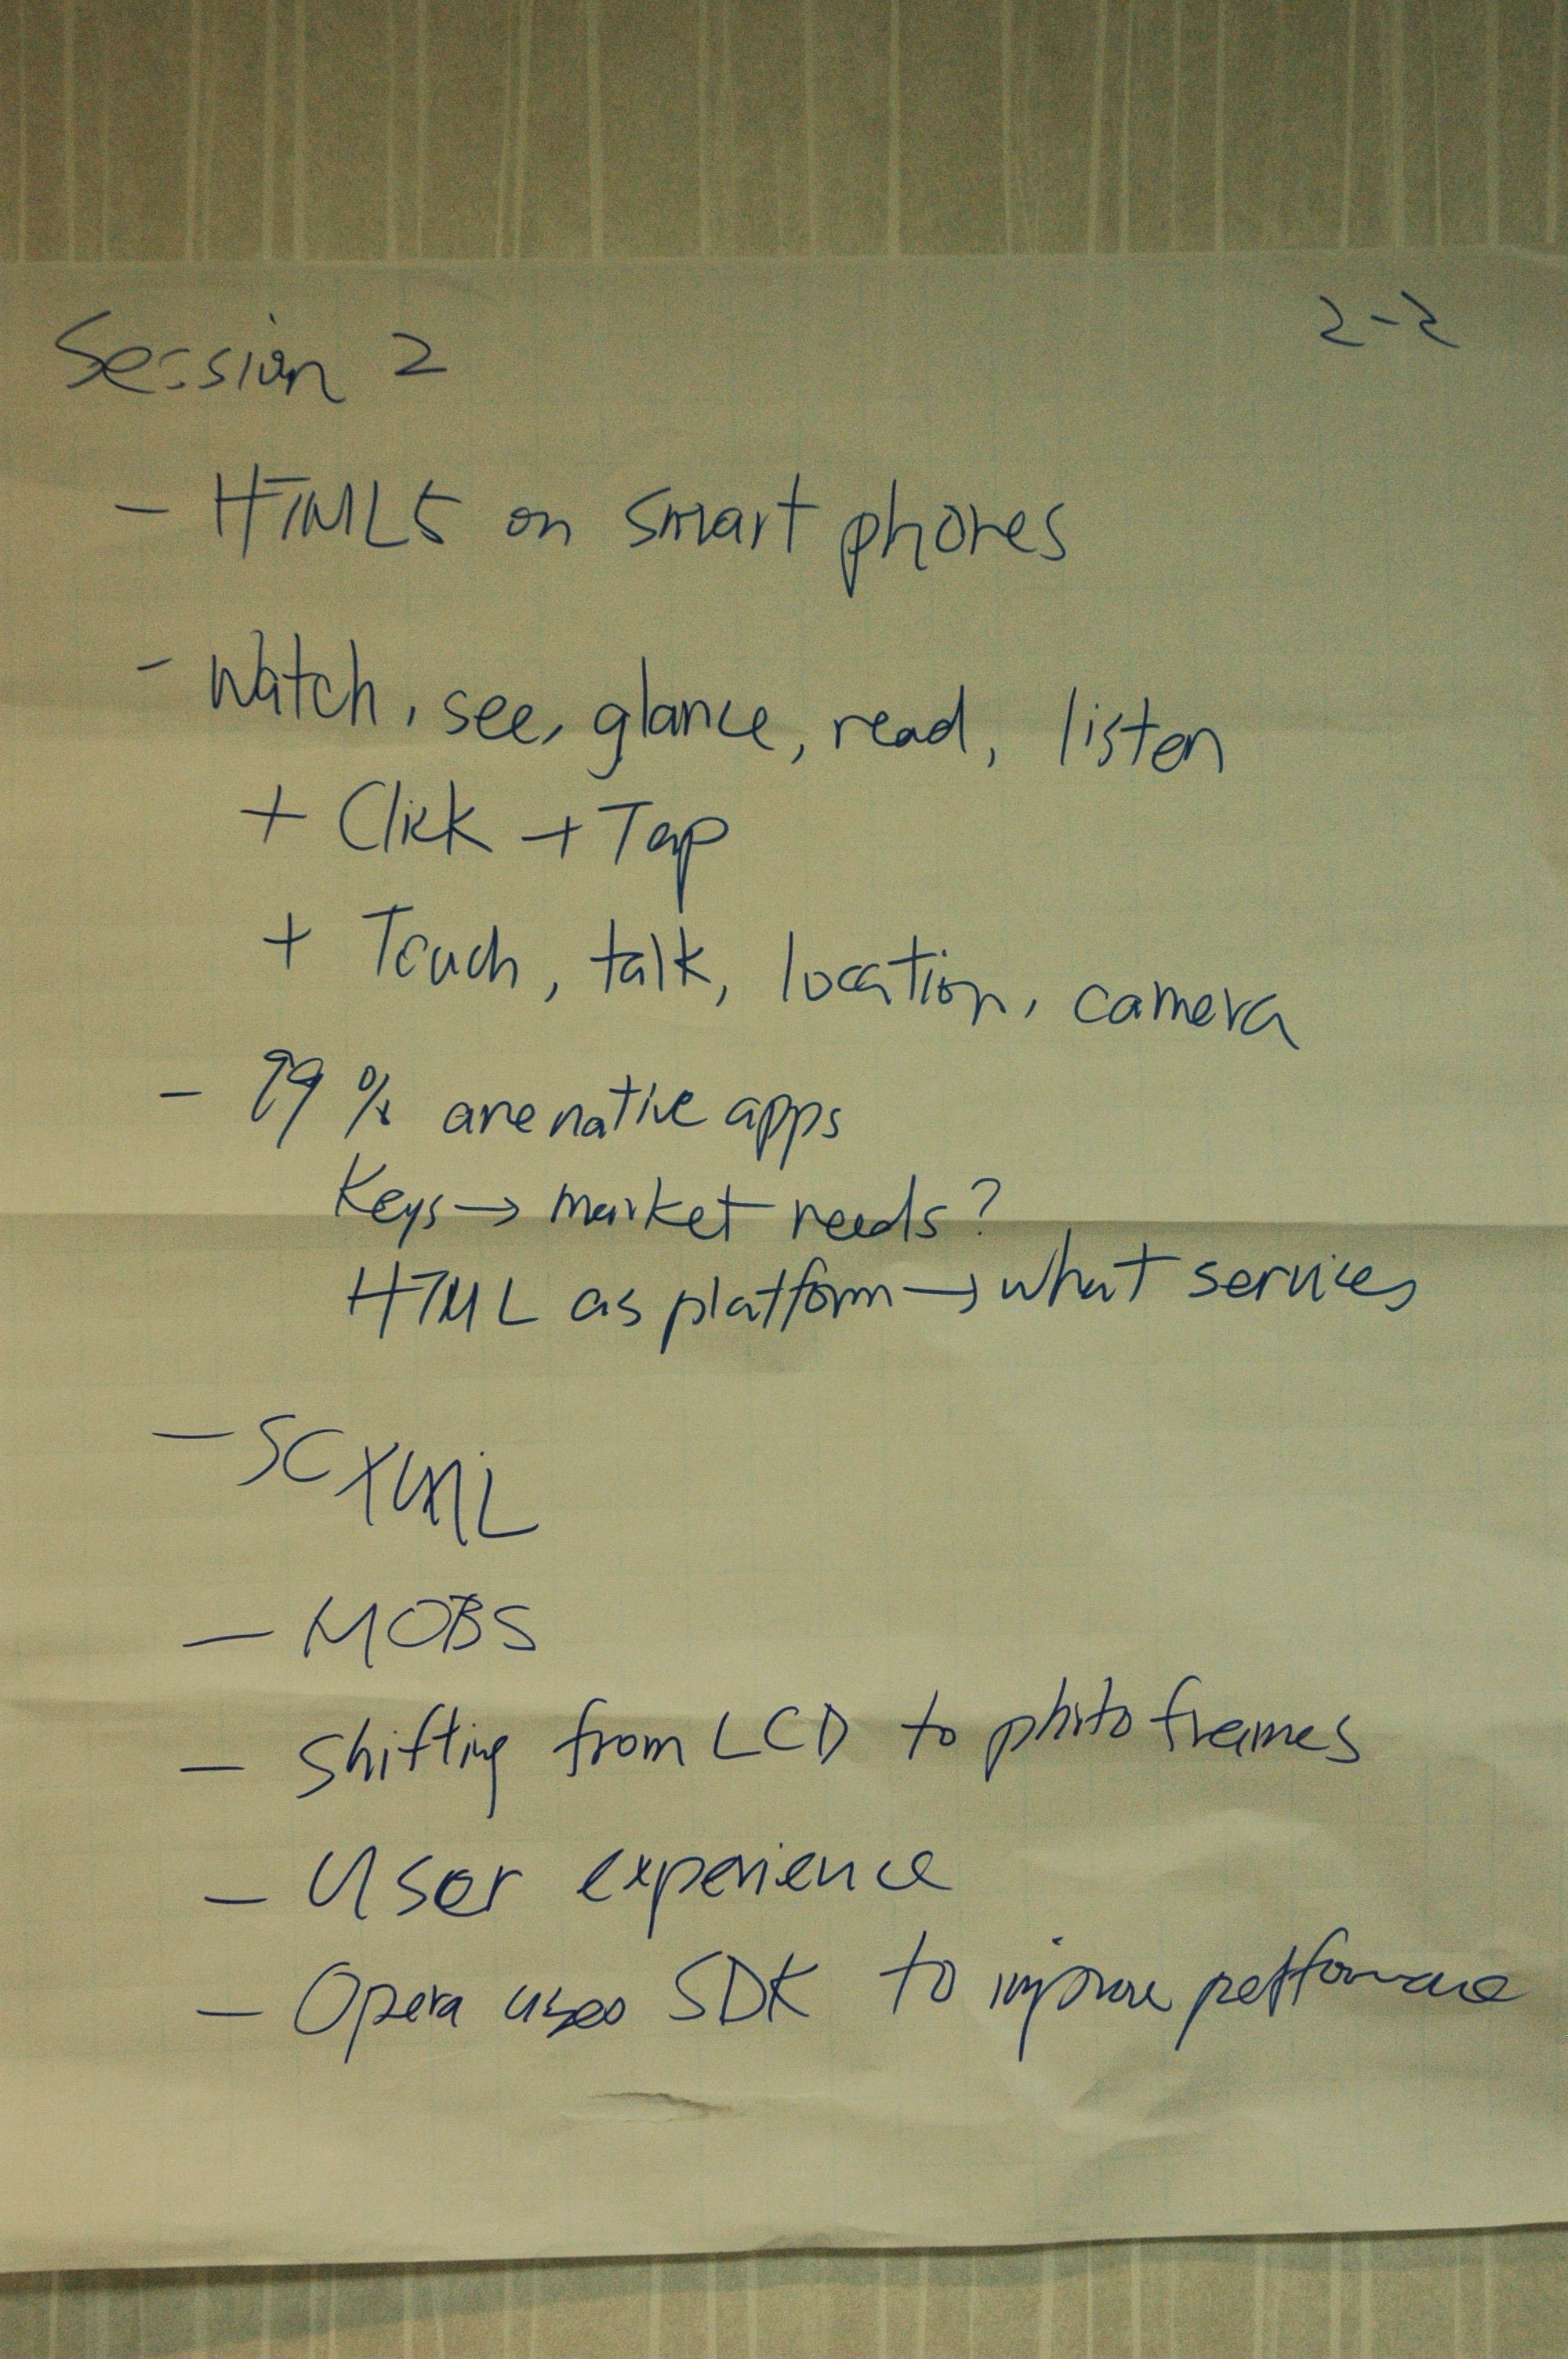 Session 2
2-2
- HTML5 on smart phones
- Watch, see, glance, read, listen
+ Click + Tap
+ Touch, talk, location, camera
- 99% are native apps
Keys → market needs?
HTML as platform → what services
- SCXML
- MOBS
- Shifting from LCD to photo frames
- User experience
- Opera uses SDK to improve performance